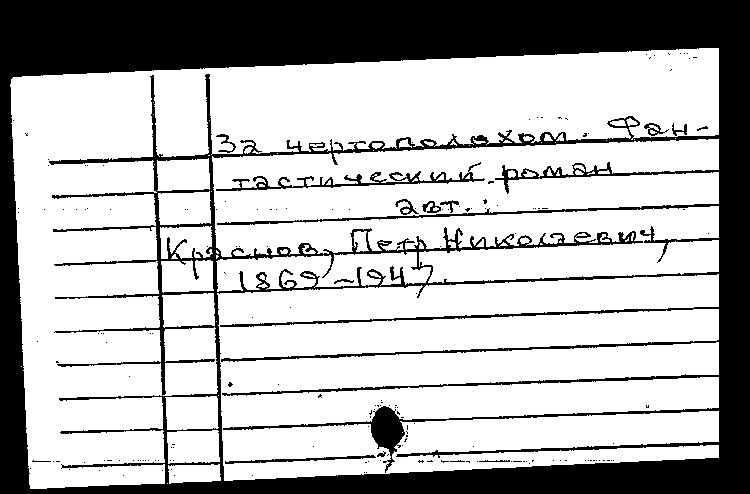 За чертополохом. Фан-
тастический роман
авт.:
Краснов, Петр Николаевич,
1869-1947.